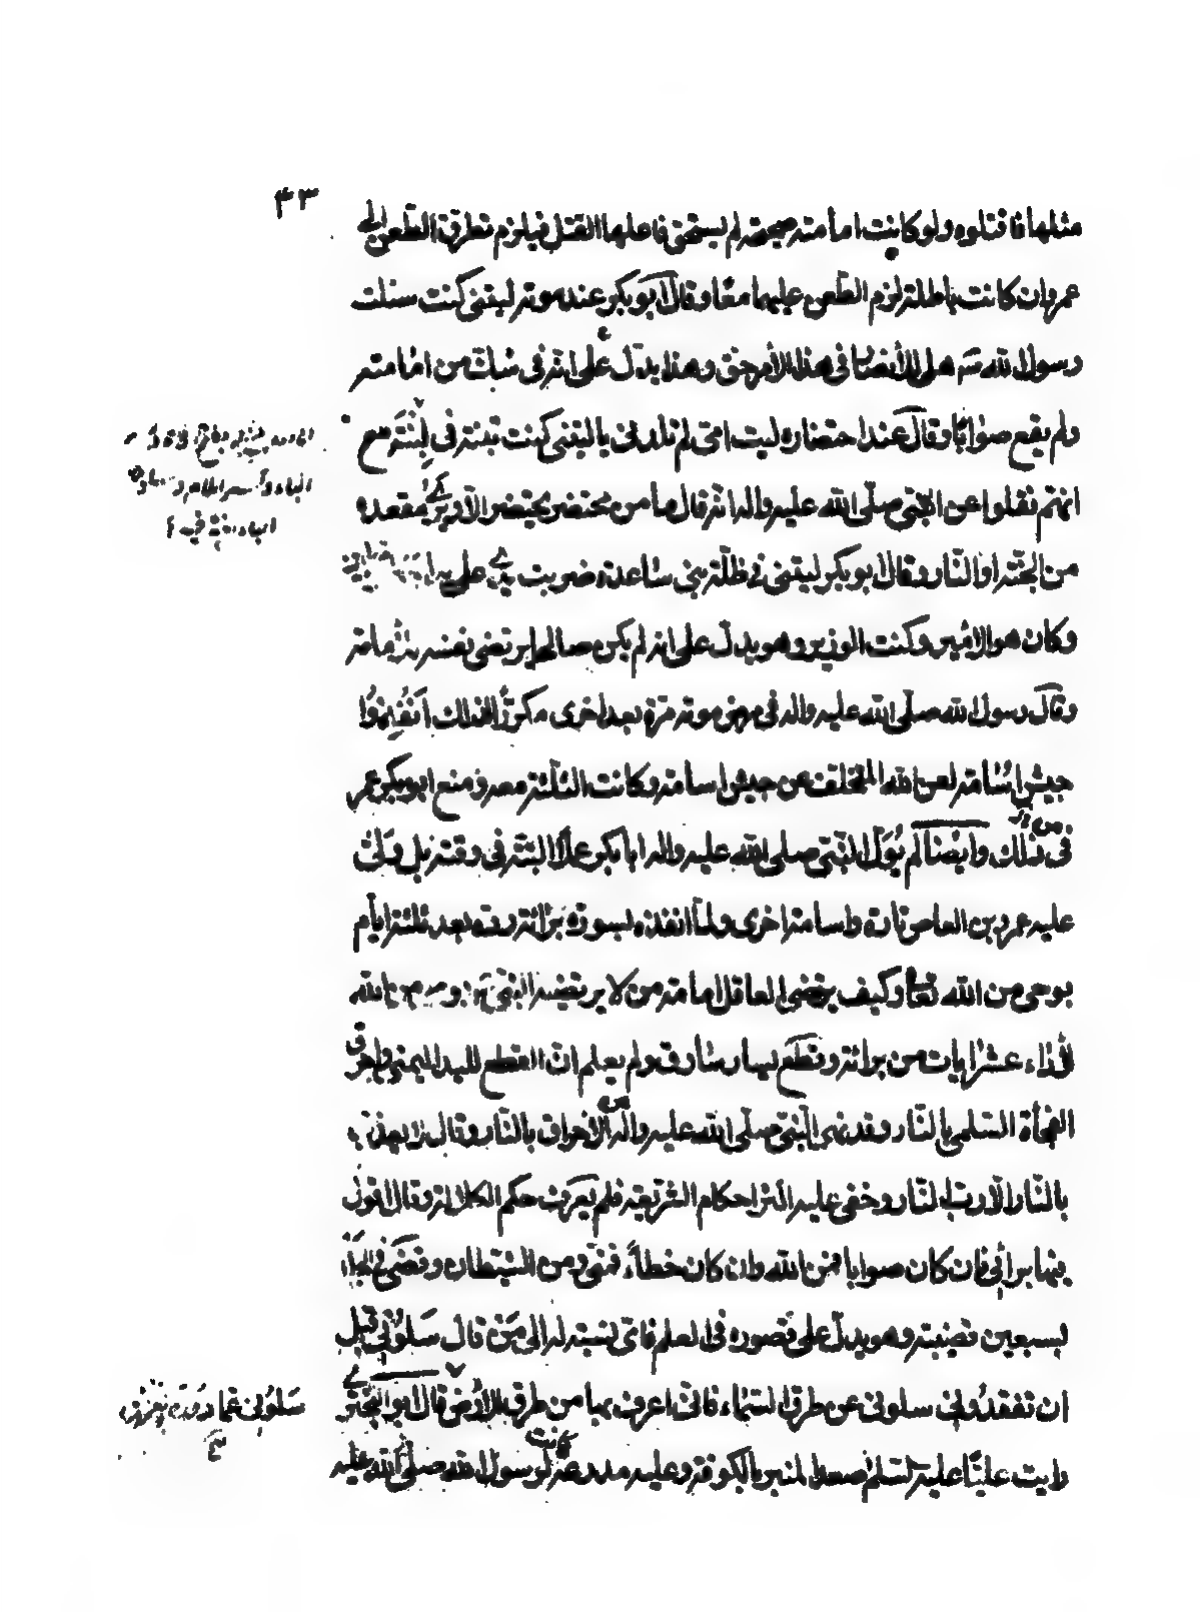 ۴۳
مثلها فاقتلوه ولو كانت امامته صحيحة لم يستحق فاعلها القتل فيلزم تطرق الطعن الى
عمر وان كانت باطلة لزم الطعن عليهما معًا وقال ابو بكر عند موته ليتنى كنت سئلت
رسول الله هل للأنصار فى هذا الأمر حق وهذا يدل على انه فى شك من امامته
ولم يقع صوابًا وقال عند احتضاره ليت امى لم تلدنى يا ليتنى كنت تبنة فى لبنة مع
انهم نقلوا عن النبى صلّى الله عليه واله انه قال ما من محتضر يحتضر الا ويرى مقعده
من الجنة او النّار وقال ابو بكر ليتنى فى ظلّة بنى ساعدة ضربت يدى على يد
وكان هو الامير وكنت الوزير وهو يدل على انه لم يكن صالحا يرتضى نفسه للأمامة
وقال رسول الله صلّى الله عليه واله فى مرض موته مرّة بعد اخرى مكرّرا لذلك اَنْفِذُوا
جيش اُسَامة لعن الله المتخلف عن جيش اسامة وكانت الثلثة معه ومنع ابو بكر عمر
من ذلك وايضًا لم يُوَلّ النبى صلى الله عليه واله ابا بكر عملًا البتة فى وقته بل ولّى
عليه عمرو بن العاص تارة واسامة اخرى ولمّا انفذه بسورة برائة رده بعد ثلثة ايّام
بوحى من الله تعا وكيف يرتضى العاقل امامة من لا يرتضيه النبى بوحى من الله
لأداء عشر ايات من برائة وقطع يسار سارق ولم يعلم انّ القطع لليد اليمنى واحرق
الفجأة السّلمى بالنّار وقد نهى النّبى صلّى الله عليه واله عن الاحراق بالنّار وقال لا يعذب
بالنّار الّا ربّ النّار وخفى عليه اكثر احكام الشريعة فلم يعرف حكم الكلالة وقال اقول
فيها برأيى فان كان صوابا فمن الله وان كان خطأً فمنّى ومن الشيطان وقضى فى الجدّ
بسبعين قضية وهو يدلّ على قصوره فى العلم فاىّ نسبة له الى مَنْ قال سَلُونى قبل
ان تفقدُونى سلونى عن طرق السّماء فانّى اعرف بها من طرق الأرض قال ابو البخترى
رايت عليّا عليه السّلم صعد المنبر بالكوفة وعليه مدرعة كانت لرسول الله صلّى الله عليه
سَلُونى عمّا دُونَ